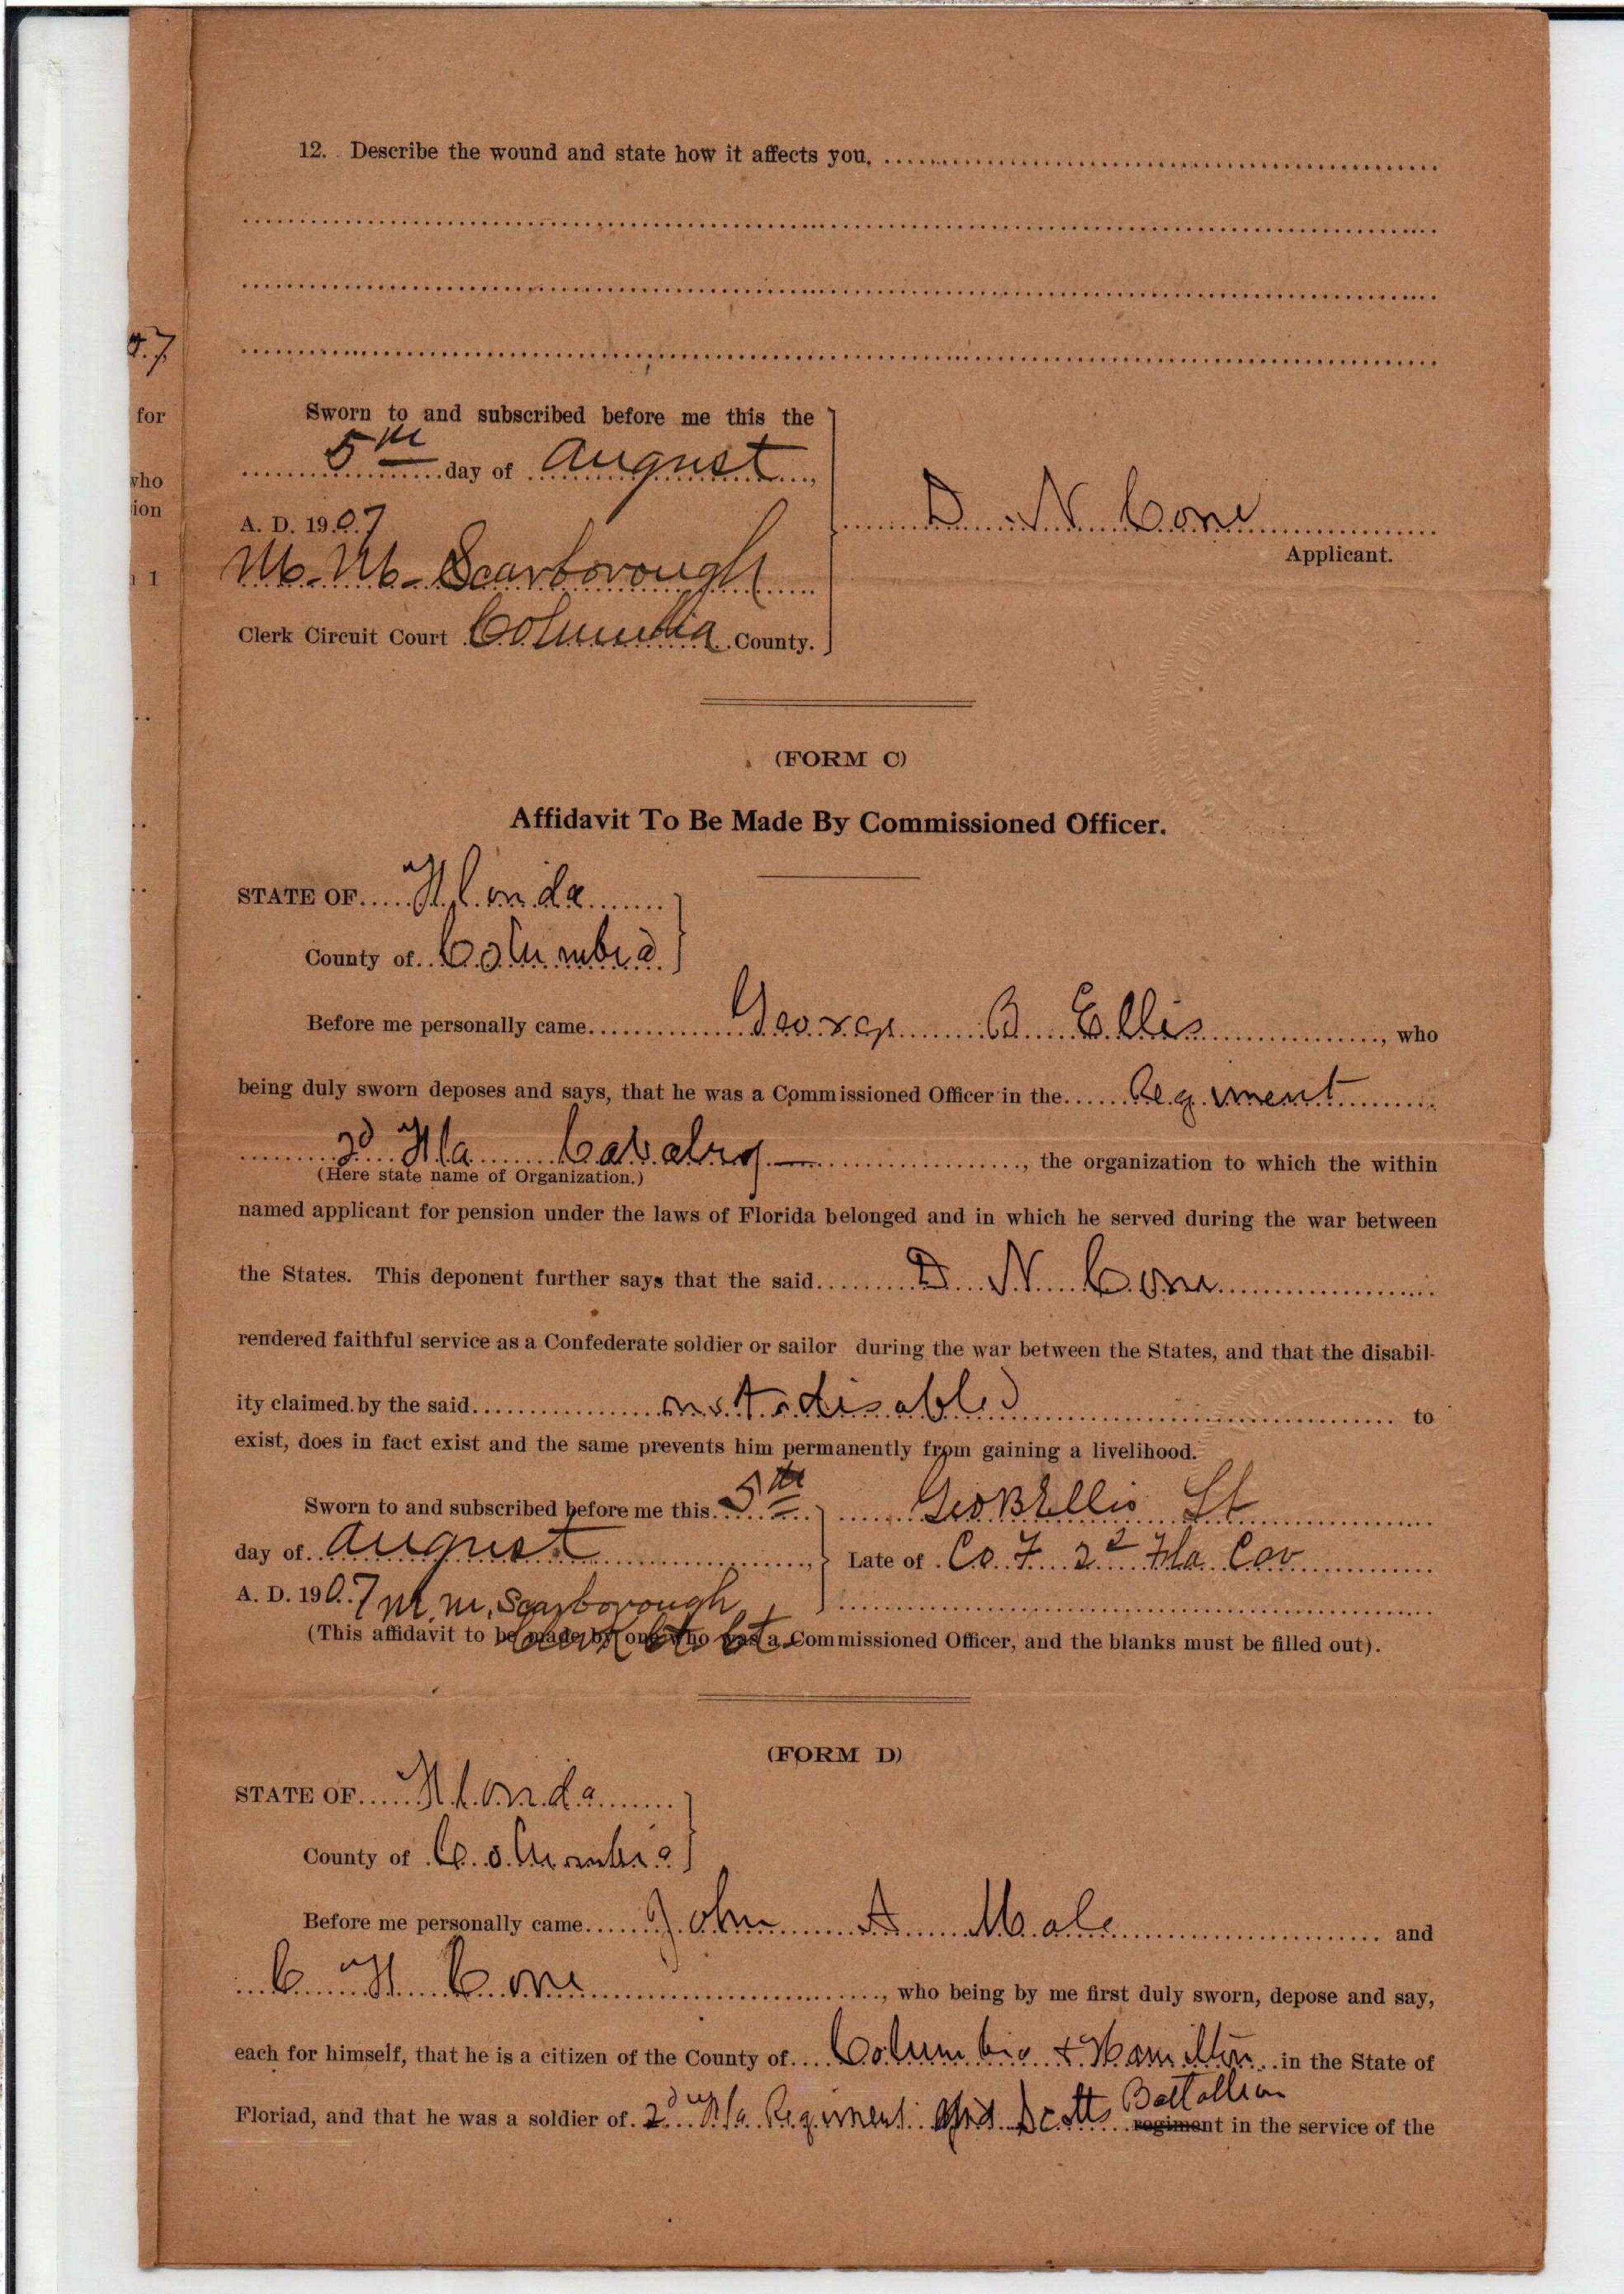 12. Describe the wound and state how it affects you,
0.7
for
Sworn to and subscribed before me this the
5th day of August,
who
ion
A. D. 1907
D N Cone
Applicant.
M. M. Scarborough
1
Clerk Circuit Court Columbia County.
(FORM C)
Affidavit To Be Made By Commissioned Officer.
STATE OF Florida
County of Columbia
Before me personally came George B Ellis, who
being duly sworn deposes and says, that he was a Commissioned Officer in the Regiment
2d Fla Cavalry, the organization to which the within
(Here state name of Organization.)
named applicant for pension under the laws of Florida belonged and in which he served during the war between
the States. This deponent further says that the said D N Cone
rendered faithful service as a Confederate soldier or sailor during the war between the States, and that the disabil-
ity claimed by the said not disabled to
exist, does in fact exist and the same prevents him permanently from gaining a livelihood.
Sworn to and subscribed before me this 5th Geo B Ellis Lt
day of August, Late of Co. F 2d Fla Cav
A. D. 1907 M. M. Scarborough
Clerk Ct Ct
(This affidavit to be made by one who was a Commissioned Officer, and the blanks must be filled out).
(FORM D)
STATE OF Florida
County of Columbia
Before me personally came John A and
C H Cone, who being by me first duly sworn, depose and say,
each for himself, that he is a citizen of the County of Columbia & Hamilton in the State of
Floriad, and that he was a soldier of 2d Fla Regiment and Scotts Battallion regiment in the service of the